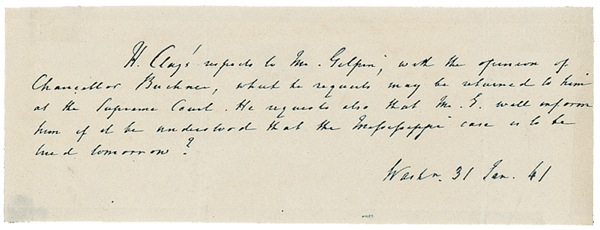 H. Clay's respects to Mr. Gilpin, with the opinion of
Chancellor Buckner, which he requests may be returned to him
at the Supreme Court. He requests also that Mr. G. will inform
him if it be understood that the Mississippi case is to be
tried tomorrow?
Washn. 31 Jan. 41